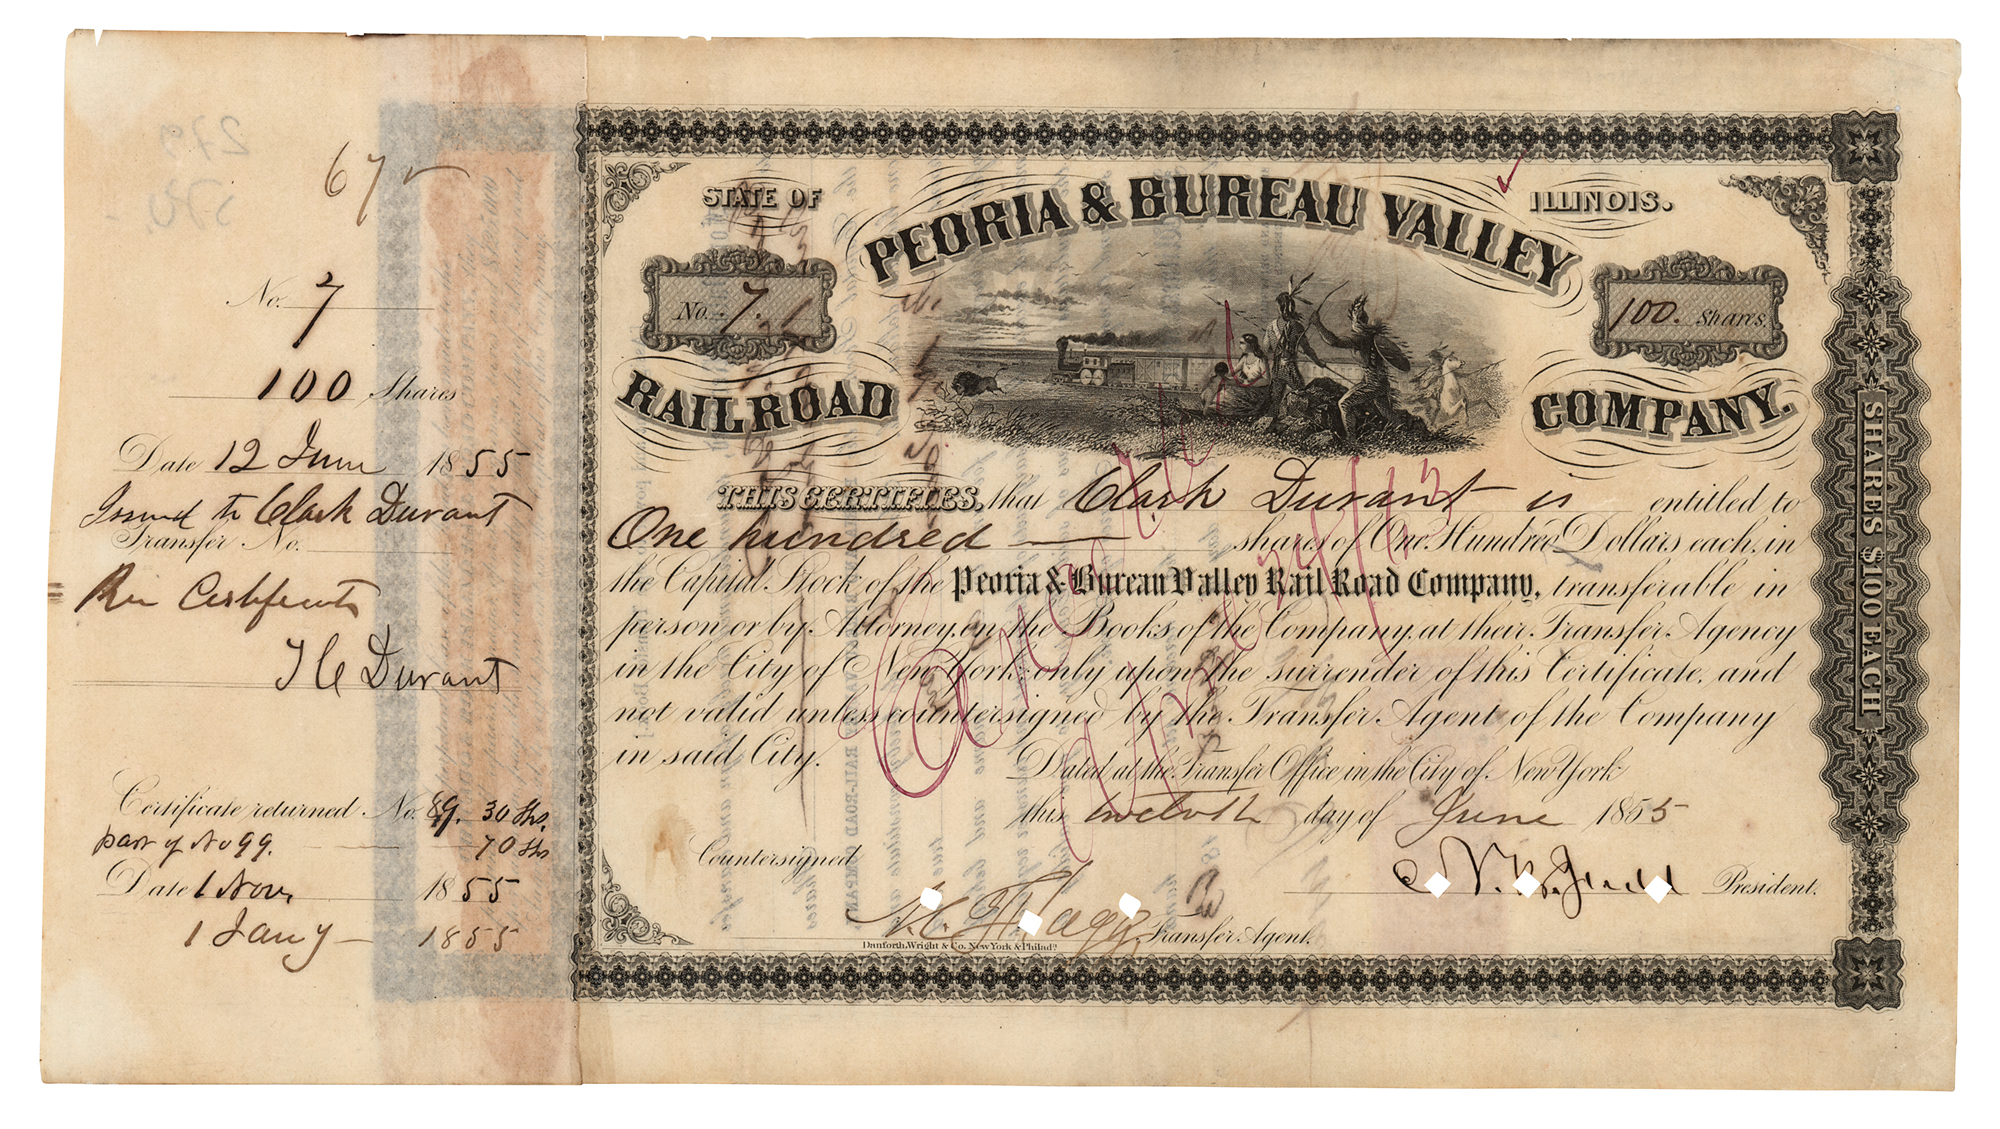 67
No. 7
100 Shares
Date 12 June 1855
Issued to Clark Durant
Transfer No.
Rec Certificate
T C Durant
Certificate returned No. 89. 30 Shs.
part of No 99. 70 Shs
Date 1 Nov. 1855
1 Jany 1855
STATE OF ILLINOIS.
PEORIA & BUREAU VALLEY
No. 7. 100. Shares.
RAIL ROAD COMPANY.
THIS CERTIFIES, that Clark Durant is entitled to
One hundred shares of One Hundred Dollars each, in
the Capital Stock of the Peoria & Bureau Valley Rail Road Company, transferable in
person or by Attorney, on the Books of the Company, at their Transfer Agency
in the City of New York, only upon the surrender of this Certificate, and
not valid unless countersigned by the Transfer Agent of the Company
in said City.
Dated at the Transfer Office in the City of New York
this twelvth day of June 1855
Countersigned
N. B. Judd President.
Flagg Transfer Agent.
Danforth, Wright & Co. New York & Philada
SHARES $100 EACH
Cancelled